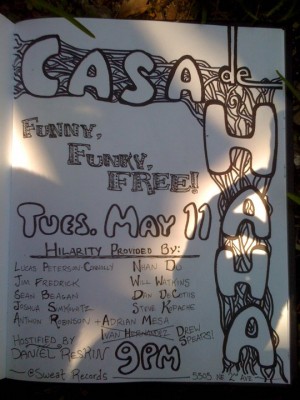 CASA de
HAHA
FUNNY,
FUNKY,
FREE!
TUES. MAY 11
HILARITY PROVIDED BY:
LUCAS PETERSON-CONNOLLY NHAN DO
JIM FREDRICK WILL WATKINS
SEAN BEAGAN DAN
JOSHUA STEVE
ANTHONY ROBINSON + ADRIAN MESA
HOSTIFIED BY DREW
DANIEL RESKIN SPEARS!
9PM
@Sweat Records 5505 NE 2nd AVE